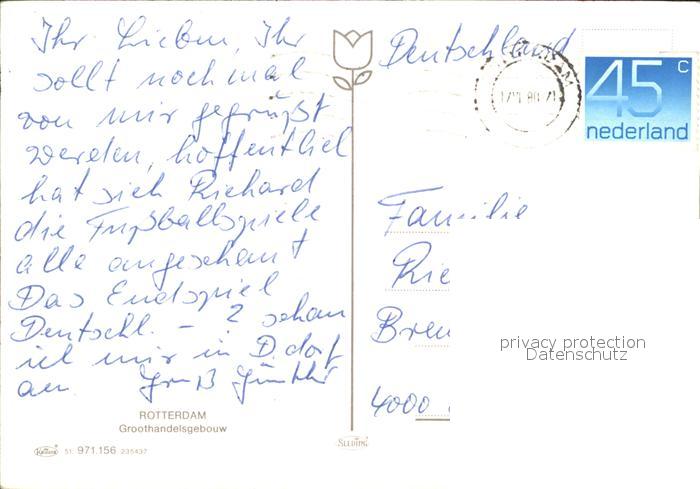 Ihr Lieben, Ihr
sollt noch mal
von mir gegrüßt
werden, hoffentlich
hat sich Richard
die Fußballspiele
alle angeschaut
Das Endspiel
Deutschl. – ? schau
ich mir in D.dorf
an. Gruß Günther
ROTTERDAM
Groothandelsgebouw
51. 971.156 235437
SLEDING
Deutschland
45 c
nederland
Familie
Rie
Breu
4000
privacy protection
Datenschutz